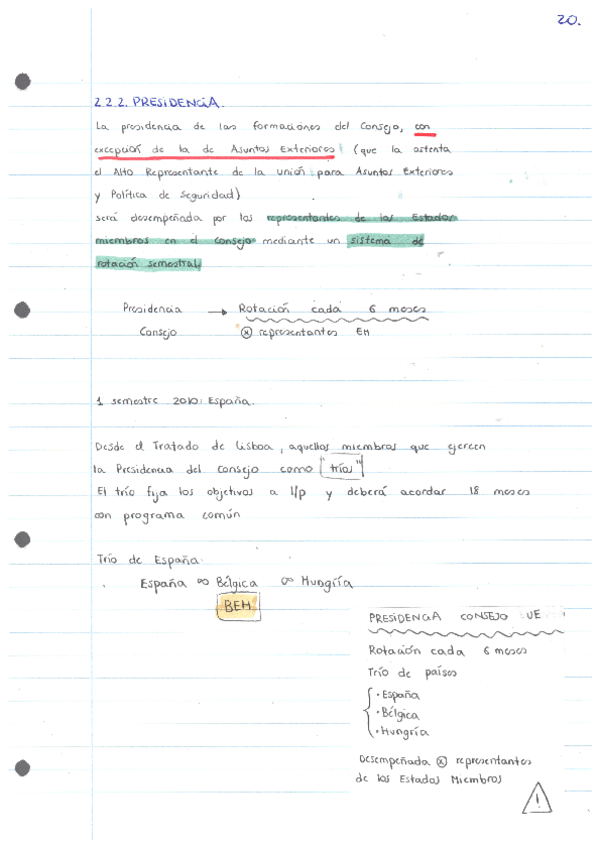 20.
2.2.2. PRESIDENCIA.
La presidencia de las formaciones del Consejo, con
excepción de la de Asuntos Exteriores (que la ostenta
el Alto Representante de la Unión para Asuntos Exteriores
y Política de Seguridad)
será desempeñada por los representantes de los Estados
miembros en el consejo mediante un sistema de
rotación semestral
Presidencia → Rotación cada 6 meses
Consejo ⓧ representantes EM
1 semestre 2010: España.
Desde el Tratado de Lisboa, aquellos miembros que ejercen
la Presidencia del consejo como "tríos"
El trío fija los objetivos a l/p y deberá acordar 18 meses
con programa común
Trío de España.
España ∞ Bélgica ∞ Hungría
BEH
PRESIDENCIA CONSEJO UE
Rotación cada 6 meses
Trío de países
· España
· Bélgica
· Hungría
Desempeñada ⓧ representantes
de los Estados Miembros
!